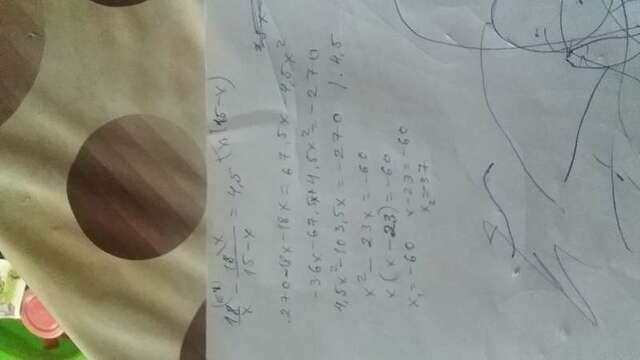 18/x - 18/15-x = 4,5 (x(15-x)
270-18x-18x=67,5x-4,5x²
-36x-67,5x+4,5x²=-270
4,5x²-103,5x=-270 /:4,5
x²-23x=-60
x(x-23)=-60
x₁=-60 x-23=-60
x₂=37